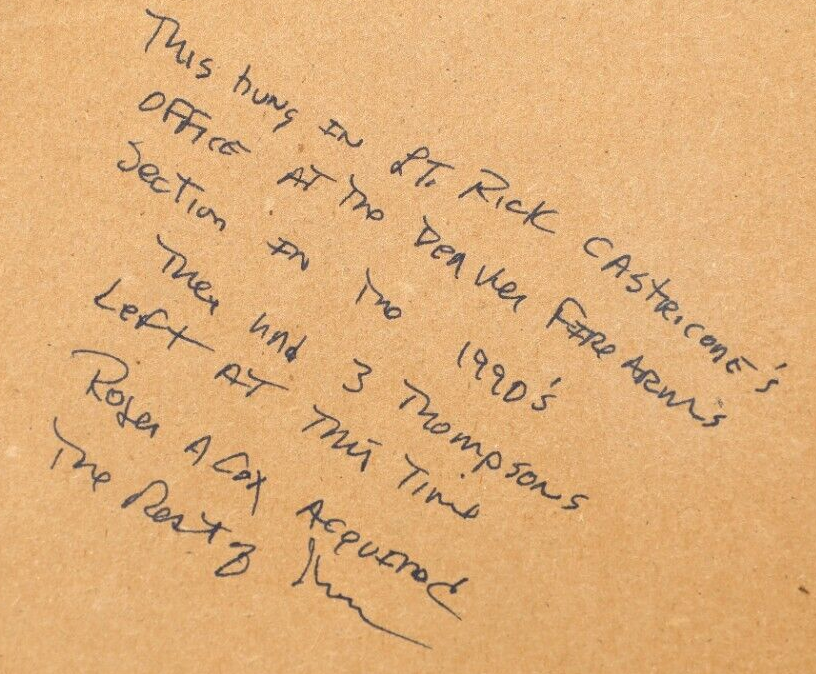 This hung IN LT. RICK CASTRICONE'S
OFFICE AT The Denver FIRE ARMS
Section IN The 1990's
They had 3 Thompsons
Left AT This Time
Roger A Cox Acquired
The Rest of Them